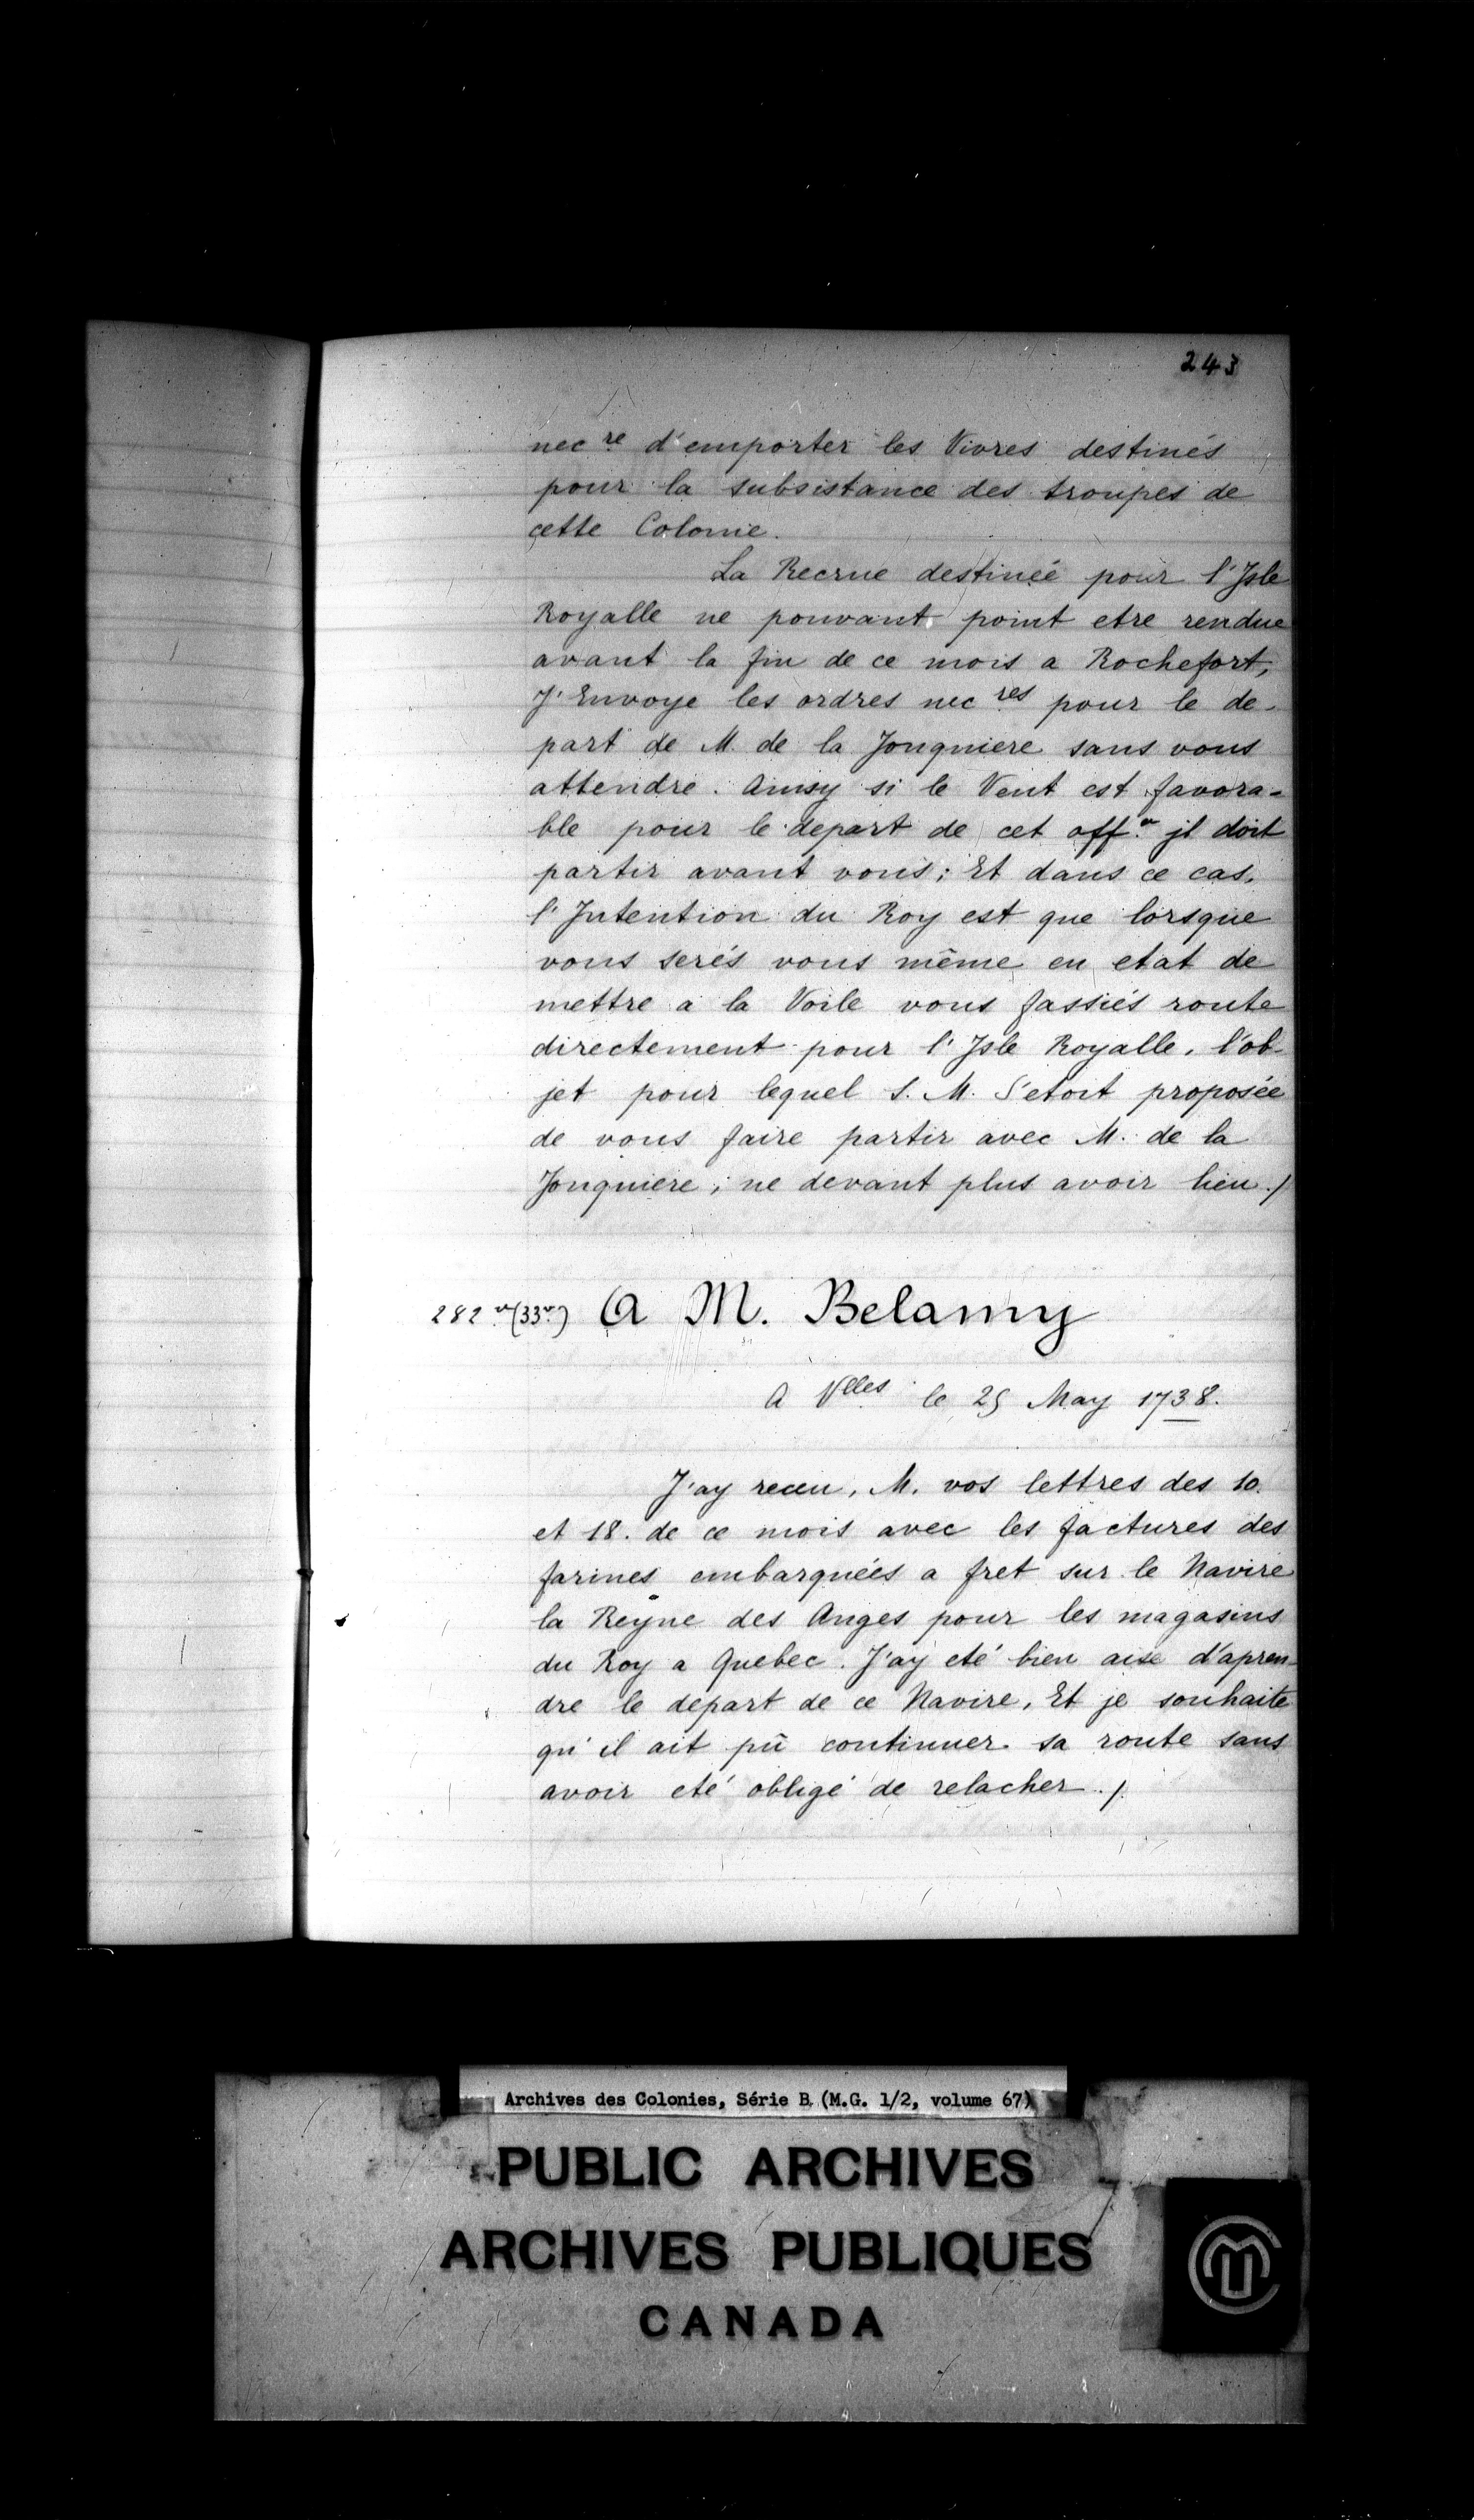 243
nec re d'emporter les Vivres destinés
pour la subsistance des troupes de
cette Colonie.
La Recrue destinée pour l'Isle
Royalle ne pouvant point etre rendue
avant la fin de ce mois a Rochefort,
J'Envoye les ordres nec res pour le de-
part de M. de la Jonquiere sans vous
attendre. Ainsy si le Vent est favora-
ble pour le depart de cet off.er jl doit
partir avant vous; Et dans ce cas,
l'Intention du Roy est que lorsque
vous serés vous même en etat de
mettre a la Voile vous fassiés route
directement pour l'Isle Royalle, l'ob-
jet pour lequel S. M. S'etoit proposée
de vous faire partir avec M. de la
Jonquiere, ne devant plus avoir lieu./
282 v (33 v) A M. Belamy
A Vlles le 25 May 1738.
J'ay receu, M. vos lettres des 10.
et 18. de ce mois avec les factures des
farines embarquées a fret sur le Navire
la Reyne des Anges pour les magasins
du Roy a Quebec. J'ay eté bien aise d'apren-
dre le depart de ce Navire, Et je souhaite
qu'il ait pû continuer sa route sans
avoir eté obligé de relacher./.
Archives des Colonies, Série B, (M.G. 1/2, volume 67)
PUBLIC ARCHIVES
ARCHIVES PUBLIQUES
CANADA